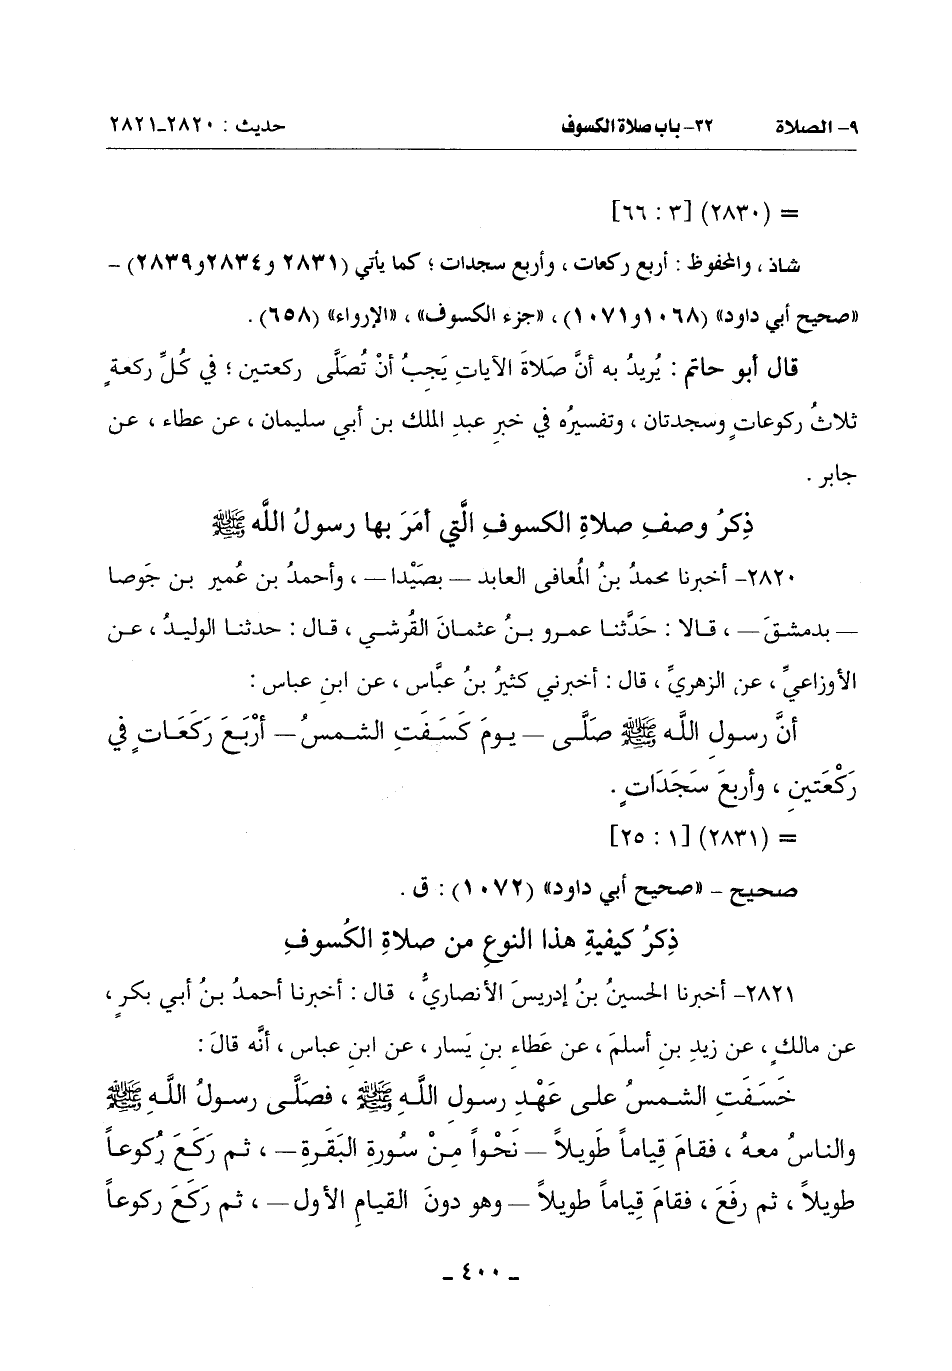 ٩- الصلاة ٣٢- باب صلاة الكسوف حديث : ٢٨٢٠-٢٨٢١
= (٢٨٣٠) [٣ : ٦٦]
شاذ ، والمحفوظ : أربع ركعات ، وأربع سجدات ؛ كما يأتي (٢٨٣١ و٢٨٣٤ و٢٨٣٩) –
«صحيح أبي داود» (١٠٦٨ و١٠٧١) ، «جزء الكسوف» ، «الإرواء» (٦٥٨) .
قال أبو حاتم : يُريدُ به أنَّ صَلاةَ الآياتِ يَجِبُ أنْ تُصَلَّى ركعتين ؛ في كُلِّ ركعةٍ
ثلاثُ ركوعاتٍ وسجدتان ، وتفسيرُه في خبرِ عبدِ الملك بن أبي سليمان ، عن عطاء ، عن
جابرٍ .
ذِكرُ وصفِ صلاةِ الكسوفِ الَّتي أمَرَ بها رسولُ اللَّه ﷺ
٢٨٢٠- أخبرنا محمدُ بنُ المُعافى العابد – بصَيْدا – ، وأحمدُ بن عُميرِ بن جَوصا
– بدمشقَ – ، قالا : حَدَّثنا عمرو بنُ عثمانَ القُرشي ، قال : حدثنا الوليدُ ، عن
الأوزاعيِّ ، عن الزهريِّ ، قال : أخبرني كثيرُ بنُ عبَّاس ، عن ابنِ عباس :
أنَّ رسولَ اللَّه ﷺ صَلَّى – يومَ كَسَفَتِ الشمسُ – أرْبَعَ رَكَعَاتٍ في
رَكْعَتينِ ، وأربعَ سَجَدَاتٍ .
= (٢٨٣١) [١ : ٢٥]
صحيح – «صحيح أبي داود» (١٠٧٢) : ق .
ذِكرُ كيفيةِ هذا النوعِ من صلاةِ الكُسوفِ
٢٨٢١- أخبرنا الحسينُ بنُ إدريسَ الأنصاريُّ ، قال : أخبرنا أحمدُ بنُ أبي بكرٍ ،
عن مالكٍ ، عن زيدِ بنِ أسلمَ ، عن عَطاءِ بنِ يَسار ، عن ابنِ عباس ، أنَّه قالَ :
خَسَفَتِ الشمسُ على عَهْدِ رسولِ اللَّهِ ﷺ ، فصَلَّى رسولُ اللَّهِ ﷺ
والناسُ معهُ ، فقامَ قِياماً طَويلاً – نَحْواً مِنْ سُورةِ البَقَرةِ – ، ثم رَكَعَ رُكوعاً
طويلاً ، ثم رفَعَ ، فقامَ قِياماً طويلاً – وهو دونَ القيامِ الأول – ، ثم رَكَعَ ركوعاً
– ٤٠٠ –